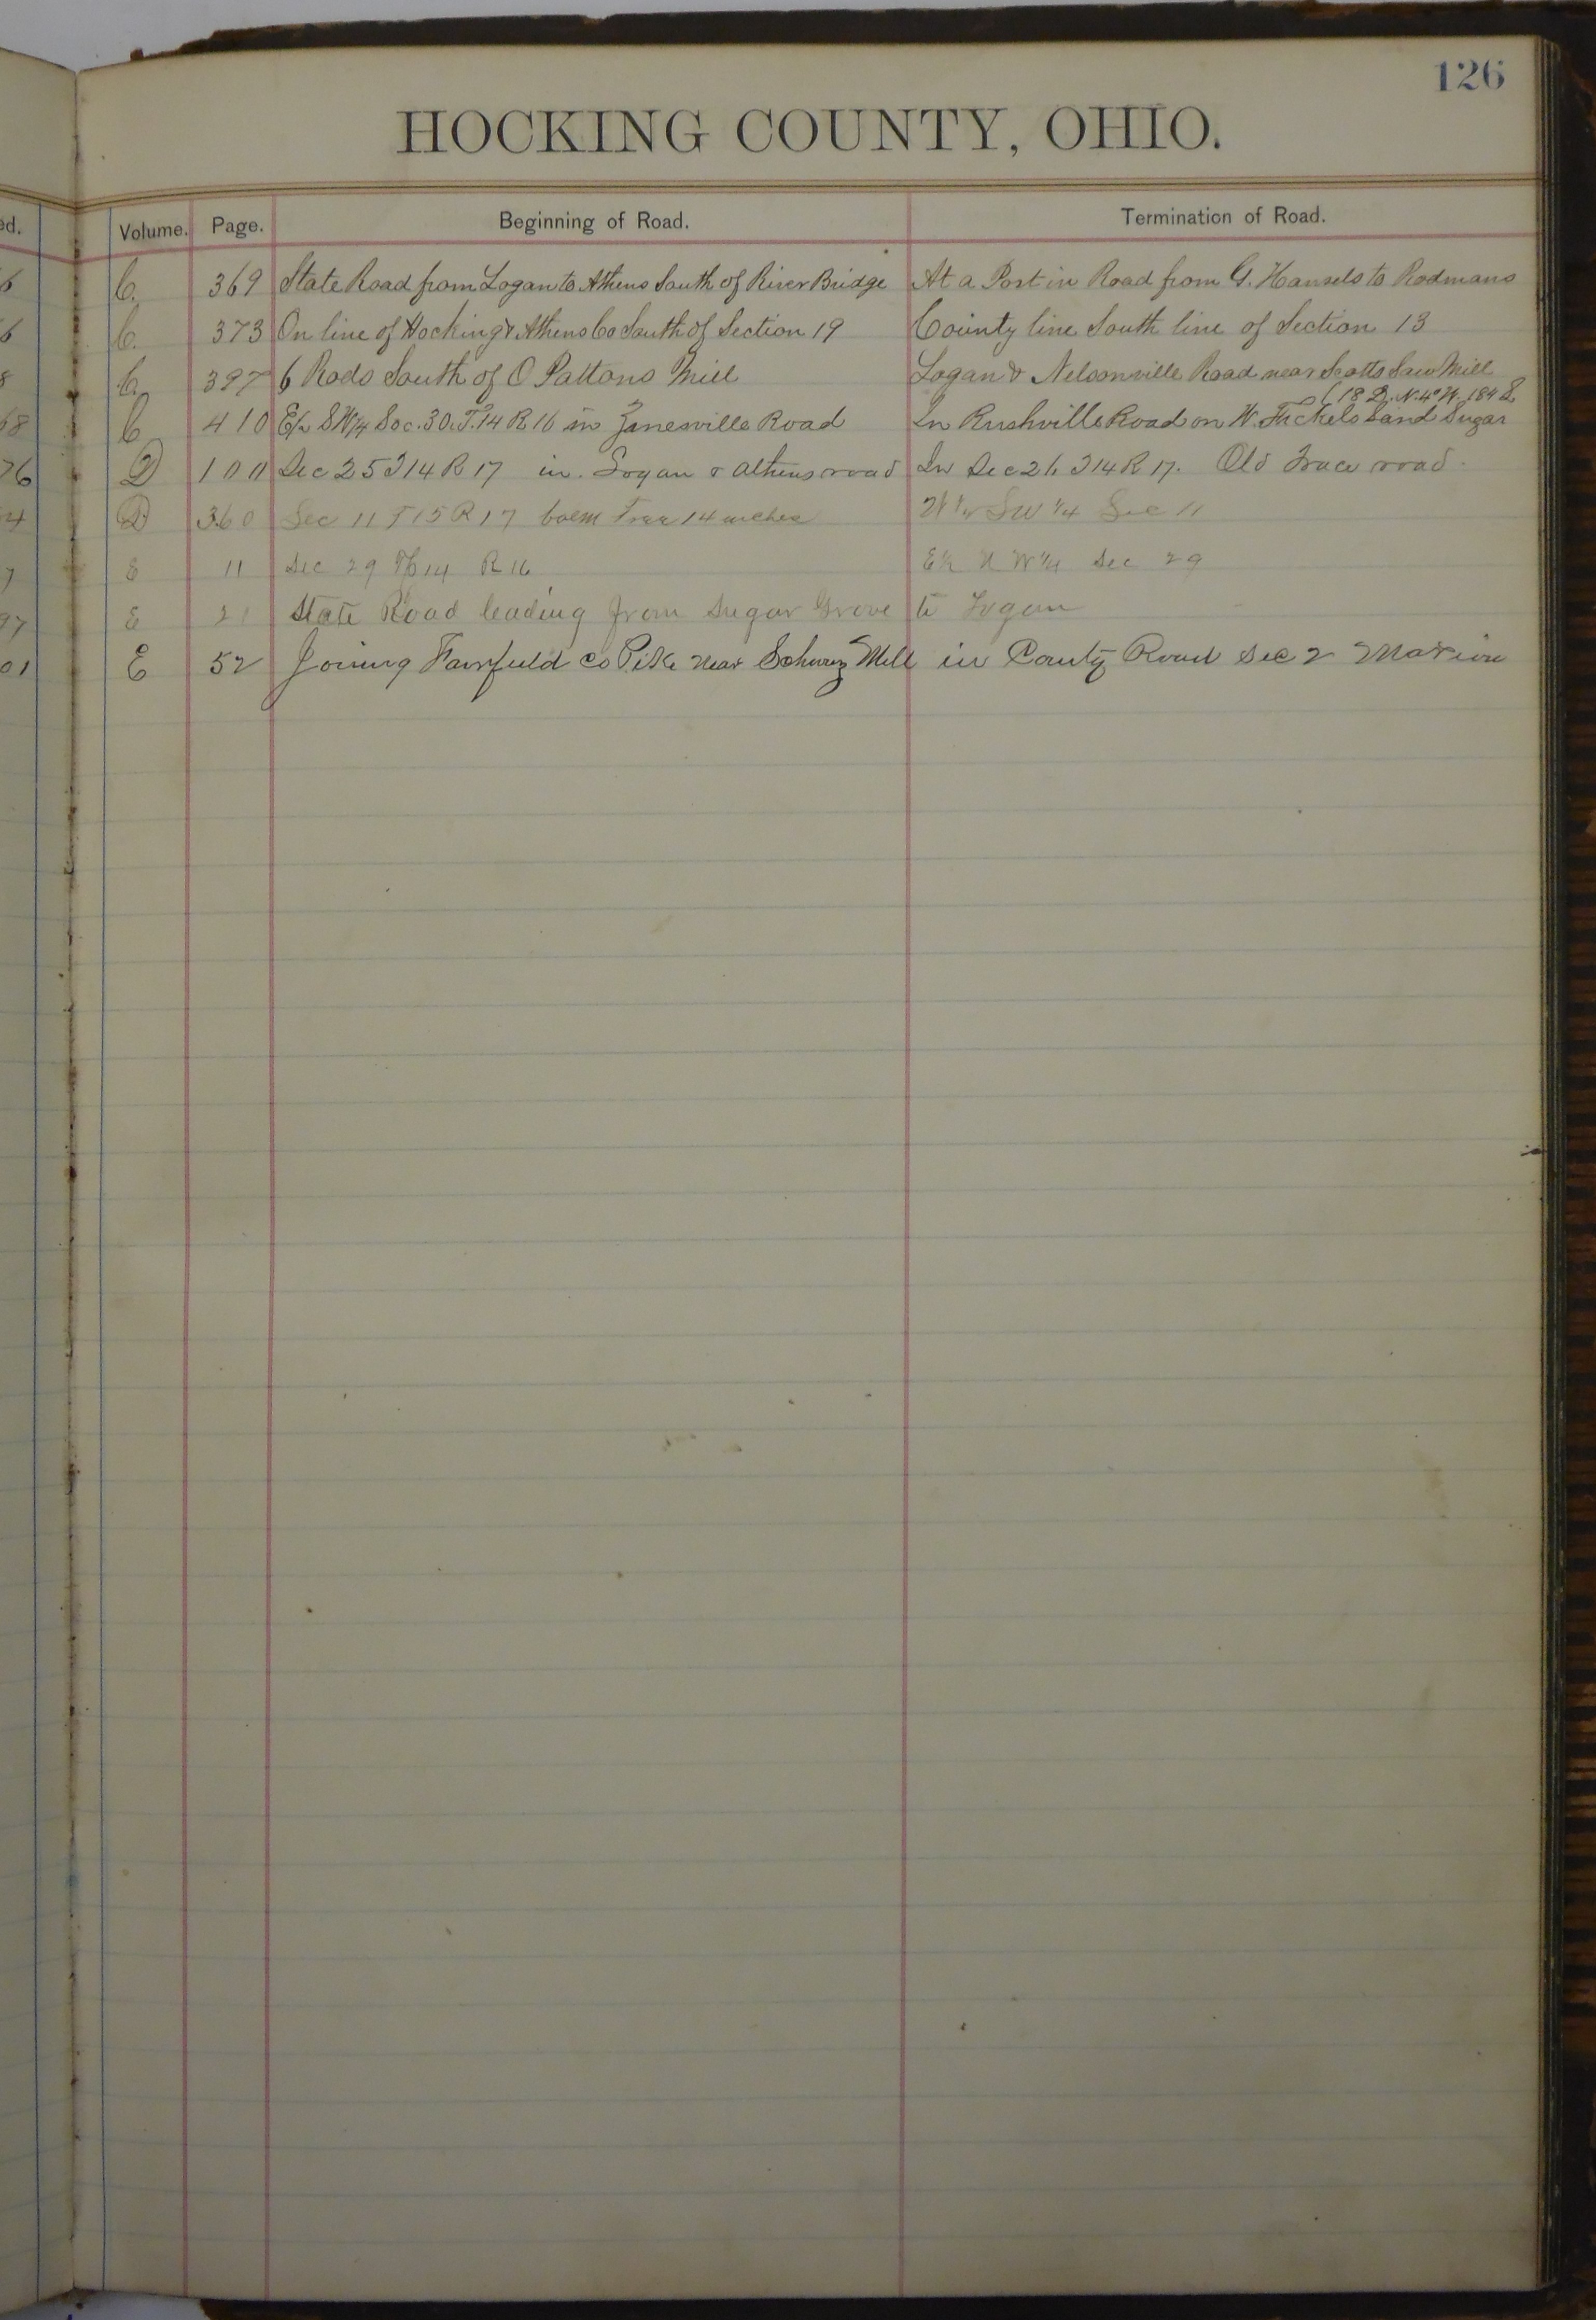 126
HOCKING COUNTY, OHIO.
ed. Volume. Page. Beginning of Road. Termination of Road.
6 C. 369 State Road from Logan to Athens South of River Bridge At a Post in Road from G. Hansels to Rodmans
6 C. 373 On line of Hocking & Athens Co South of Section 19 County line South line of Section 13
8 C. 397 6 Rods South of O Pattons Mill Logan & Nelsonville Road near Scotts Saw Mill
(18 D. N. 4° W. 184 L
68 C 410 E/2 SW/4 Sec. 30. T. 14 R 16 in Zanesville Road In Rushville Road on W. Fickels Land Sugar
76 D 100 Sec 25 T14 R 17 in Logan & Athens road In Sec 26 T14 R 17. Old Trace road.
4 D 360 Sec 11 T 15 R 17 14 inches W ½ SW ¼ Sec 11
7 E 11 Sec 29 Tp 14 R 16 E½ N W ¼ Sec 29
97 E 21 State Road leading from Sugar Grove to Logan
01 E 52 Joining Fairfield Co Pike near Schwarz Mill in County Road Sec 2 Marion